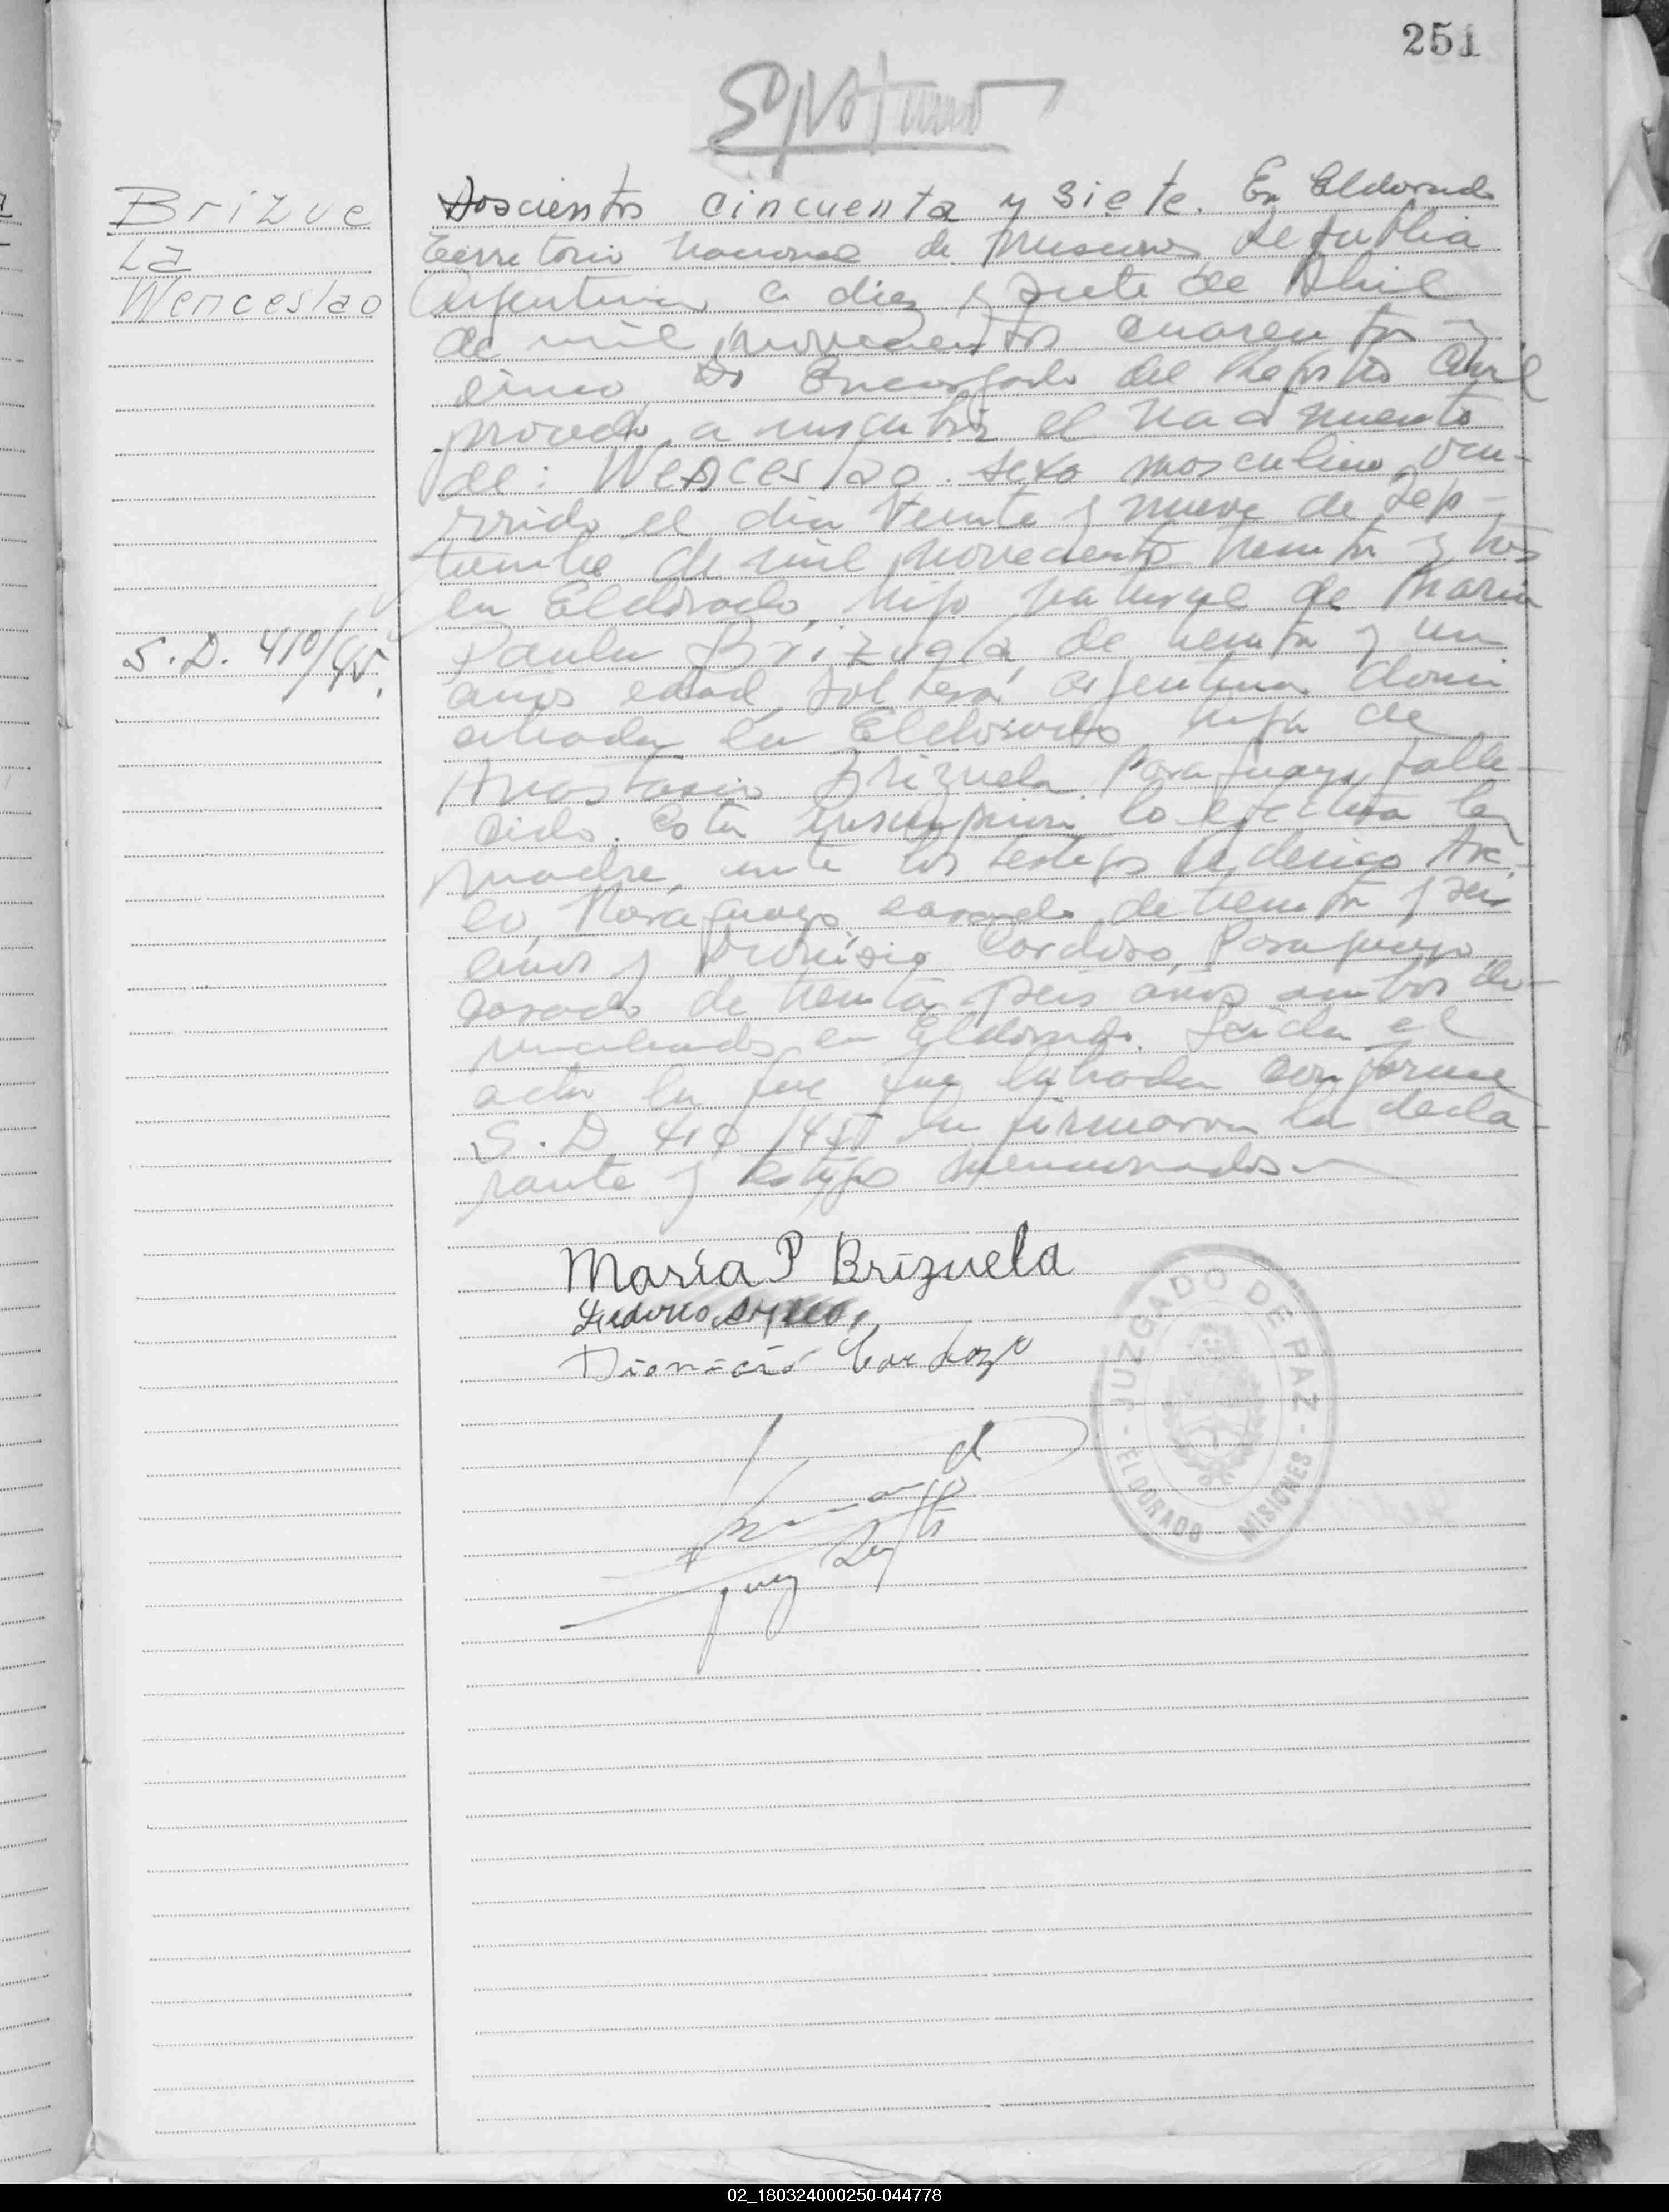 251
Brizue
la
Wenceslao
S.D. 410/45.
Doscientos cincuenta y siete. En Eldorado
Territorio Nacional de Misiones Republica
Argentina a diez y siete de Abril
de mil novecientos cuarenta y
cinco, Yo Encargado del Registro Civil
procedo a inscribir el nacimiento
de: Wenceslao. sexo masculino, ocu-
rrido el dia veinte y nueve de Sep-
tiembre de mil novecientos treinta y tres
en Eldorado, hijo natural de Maria
Paula Brizuela, de treinta y un
años edad, soltera, argentina domi
ciliada en Eldorado hija de
Anastasio Brizuela. Paraguayo, falle-
cido. Esta inscripcion lo efectua la
madre, ante los testigos Federico
Paraguayo, casado, de treinta y seis
años y Dionisio Cardoso, Paraguayo
casado de treinta y seis años ambos do-
miciliados en Eldorado. Leida el
acta la que fue labrada conforme
S.D 410/45 la firmaron la decla-
rante y testigos mencionados
María P Brizuela
Federico
Dionicio Cardozo
Juez
JUZGADO DE PAZ
- ELDORADO MISIONES -
02_180324000250-044778